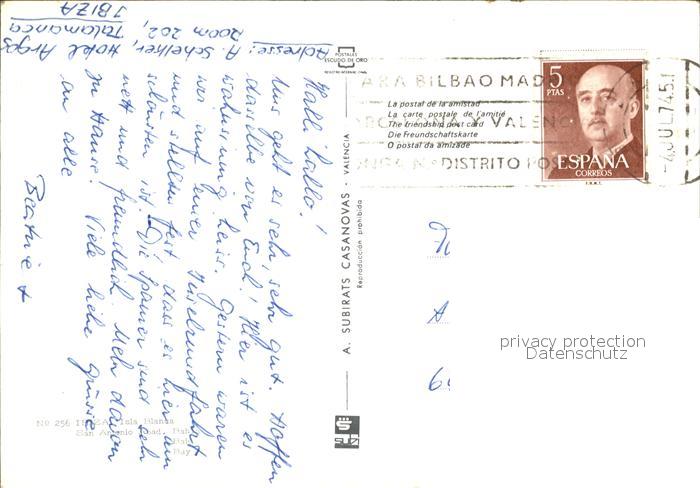 Adresse: A. Schelker, Hotel Argos
Room 202, Talamanca
IBIZA
Hallo hallo!
Uns geht es sehr, sehr gut. Hoffen
dasselbe von Euch! Hier ist es
wahnsinnig heiss. Gestern waren
wir auf einer Inselrundfahrt
und stellten fest, dass es hier am
schönsten ist. Die Spanier sind sehr
nett und freundlich. Mehr davon
zu Hause! Viele liebe Grüsse
an alle
+
Nº 256 IBIZA, Isla Blanca
San Antonio Abad.
Bay
POSTALES
ESCUDO DE ORO
A. SUBIRATS CASANOVAS - VALENCIA
Reproducción prohibida
La postal de la amistad
La carte postale de l'amitié
The friendship post card
Die Freundschaftskarte
O postal da amizade
ARA BILBAO MAD
VALENC
DISTRITO POS
5
PTAS
ESPAÑA
CORREOS
F.N.M.T.
-4 JUL 74
A
69
privacy protection
Datenschutz